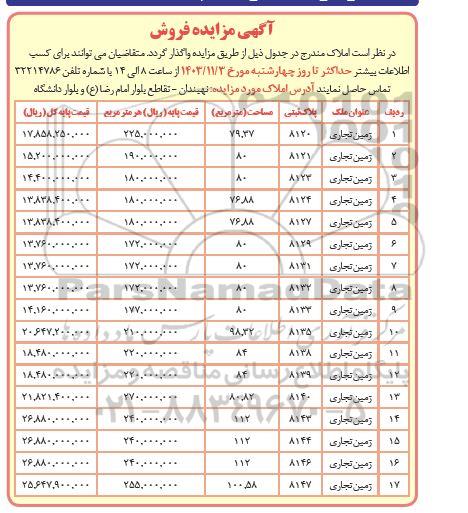 آگهی مزایده فروش
در نظر است املاک مندرج در جدول ذیل از طریق مزایده واگذار گردد. متقاضیان می توانند برای کسب
اطلاعات بیشتر حداکثر تا روز چهارشنبه مورخ ۱۴۰۳/۱۱/۳ از ساعت ۸ الی ۱۴ با شماره تلفن ۳۲۲۱۴۷۸۶
تماس حاصل نمایند آدرس املاک مورد مزایده: نهبندان - تقاطع بلوار امام رضا (ع) و بلوار دانشگاه
ردیف عنوان ملک پلاک ثبتی مساحت (متر مربع) قیمت پایه (ریال) هر متر مربع قیمت پایه کل (ریال)
۱ زمین تجاری ۸۱۲۰ ۷۹,۳۷ ۲۲۵,۰۰۰,۰۰۰ ۱۷,۸۵۸,۲۵۰,۰۰۰
۲ زمین تجاری ۸۱۲۱ ۸۰ ۱۹۰,۰۰۰,۰۰۰ ۱۵,۲۰۰,۰۰۰,۰۰۰
۳ زمین تجاری ۸۱۲۳ ۸۰ ۱۸۰,۰۰۰,۰۰۰ ۱۴,۴۰۰,۰۰۰,۰۰۰
۴ زمین تجاری ۸۱۲۴ ۷۶,۸۸ ۱۸۰,۰۰۰,۰۰۰ ۱۳,۸۳۸,۴۰۰,۰۰۰
۵ زمین تجاری ۸۱۲۷ ۷۶,۸۸ ۱۸۰,۰۰۰,۰۰۰ ۱۳,۸۳۸,۴۰۰,۰۰۰
۶ زمین تجاری ۸۱۲۹ ۸۰ ۱۷۲,۰۰۰,۰۰۰ ۱۳,۷۶۰,۰۰۰,۰۰۰
۷ زمین تجاری ۸۱۳۱ ۸۰ ۱۷۲,۰۰۰,۰۰۰ ۱۳,۷۶۰,۰۰۰,۰۰۰
۸ زمین تجاری ۸۱۳۲ ۸۰ ۱۷۲,۰۰۰,۰۰۰ ۱۳,۷۶۰,۰۰۰,۰۰۰
۹ زمین تجاری ۸۱۳۳ ۸۰ ۱۷۷,۰۰۰,۰۰۰ ۱۴,۱۶۰,۰۰۰,۰۰۰
۱۰ زمین تجاری ۸۱۳۵ ۹۸,۳۲ ۲۱۰,۰۰۰,۰۰۰ ۲۰,۶۴۷,۲۰۰,۰۰۰
۱۱ زمین تجاری ۸۱۳۸ ۸۴ ۲۲۰,۰۰۰,۰۰۰ ۱۸,۴۸۰,۰۰۰,۰۰۰
۱۲ زمین تجاری ۸۱۳۹ ۸۴ ۲۲۰,۰۰۰,۰۰۰ ۱۸,۴۸۰,۰۰۰,۰۰۰
۱۳ زمین تجاری ۸۱۴۰ ۸۰,۸۲ ۲۷۰,۰۰۰,۰۰۰ ۲۱,۸۲۱,۴۰۰,۰۰۰
۱۴ زمین تجاری ۸۱۴۳ ۱۱۲ ۲۴۰,۰۰۰,۰۰۰ ۲۶,۸۸۰,۰۰۰,۰۰۰
۱۵ زمین تجاری ۸۱۴۴ ۱۱۲ ۲۴۰,۰۰۰,۰۰۰ ۲۶,۸۸۰,۰۰۰,۰۰۰
۱۶ زمین تجاری ۸۱۴۶ ۱۱۲ ۲۴۰,۰۰۰,۰۰۰ ۲۶,۸۸۰,۰۰۰,۰۰۰
۱۷ زمین تجاری ۸۱۴۷ ۱۰۰,۵۸ ۲۵۵,۰۰۰,۰۰۰ ۲۵,۶۴۷,۹۰۰,۰۰۰
ParsNamadData
پایگاه اطلاع رسانی مناقصه و مزایده
۰۲۱-۸۸۳۴۹۶۷۰-۵